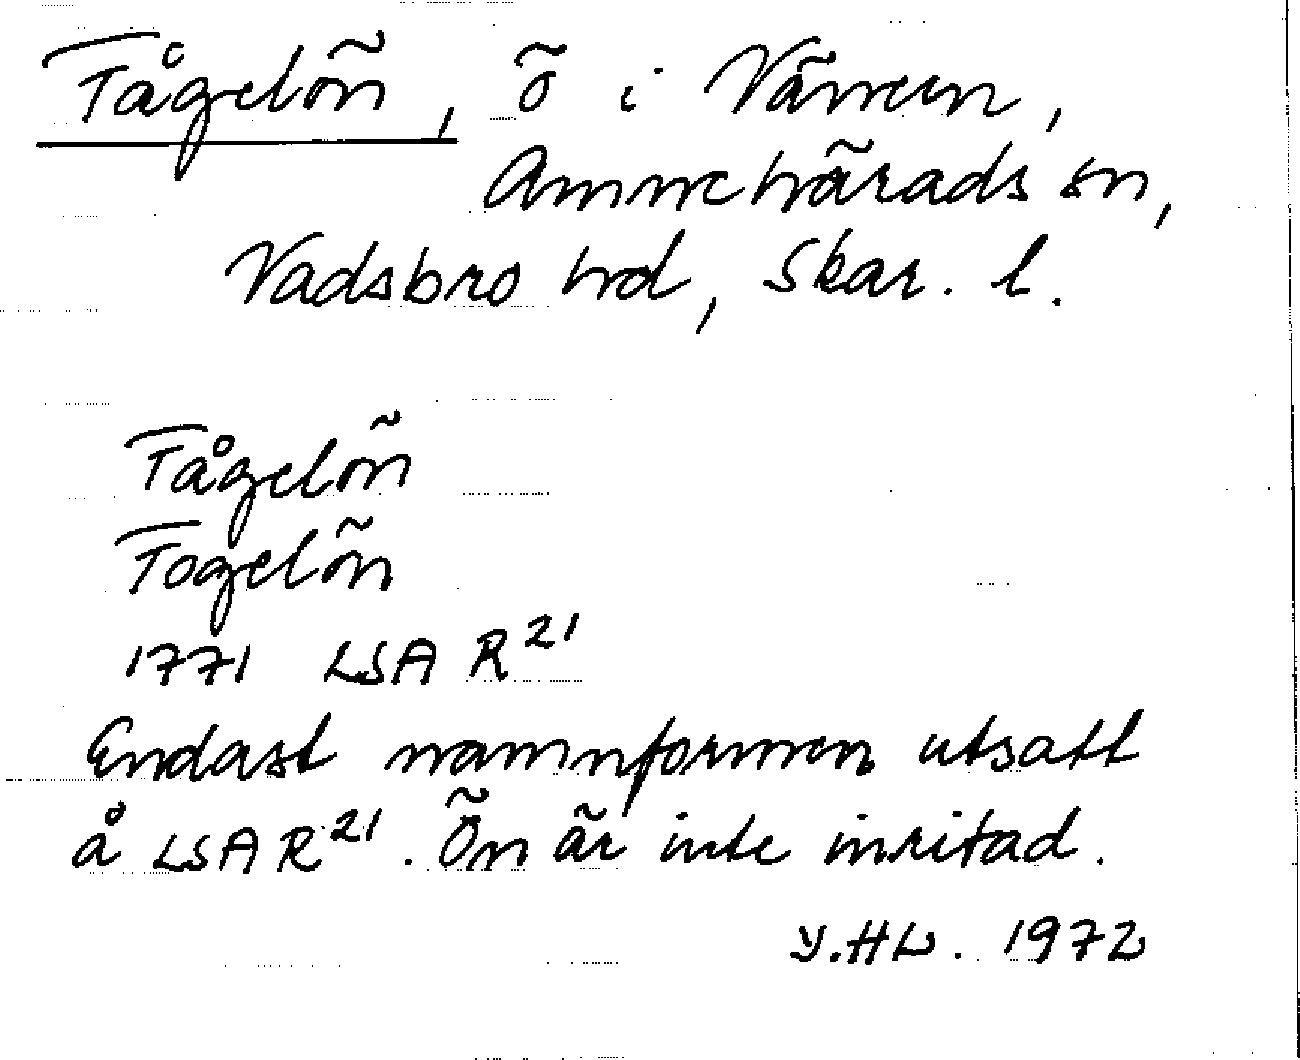 Fågelön, ö i Vänern,
Amnehärads sn,
Vadsbro hd, Skar. l.
Fågelön
Fogelön
1771 LSA R21
Endast namnformen utsatt
å LSA R21. Ön är inte inritad.
Y.HL. 1972